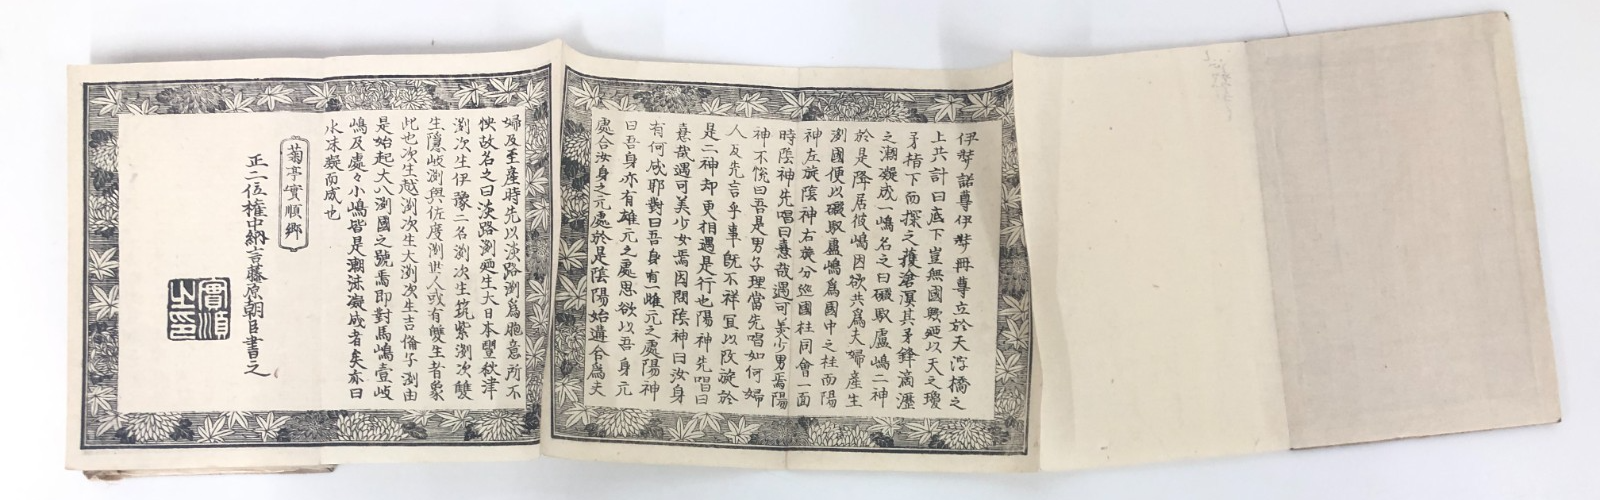 伊弉諾尊伊弉冊尊立於天浮橋之
上共計曰底下豈無國歟廼以天之瓊
矛指下而探之獲滄溟其矛鋒滴瀝
之潮凝成一嶋名之曰磤馭盧嶋二神
於是降居彼嶋因欲共爲夫婦產生
洲國便以磤馭盧嶋爲國中之柱而陽
神左旋陰神右旋分巡國柱同會一面
時陰神先唱曰憙哉遇可美少男焉陽
神不悅曰吾是男子理當先唱如何婦
人反先言乎事旣不祥宜以改旋於
是二神却更相遇是行也陽神先唱曰
憙哉遇可美少女焉因問陰神曰汝身
有何成耶對曰吾身有一雌元之處陽神
曰吾身亦有雄元之處思欲以吾身元
處合汝身之元處於是陰陽始遘合爲夫
婦及至產時先以淡路洲爲胞意所不
快故名之曰淡路洲廼生大日本豐秋津
洲次生伊豫二名洲次生筑紫洲次雙
生隱岐洲與佐度洲世人或有雙生者象
此也次生越洲次生大洲次生吉備子洲由
是始起大八洲國之號焉即對馬嶋壹岐
嶋及處々小嶋皆是潮沫凝成者矣亦曰
水沫凝而成也
菊亭實順卿
正二位權中納言藤原朝臣書之
實順之印